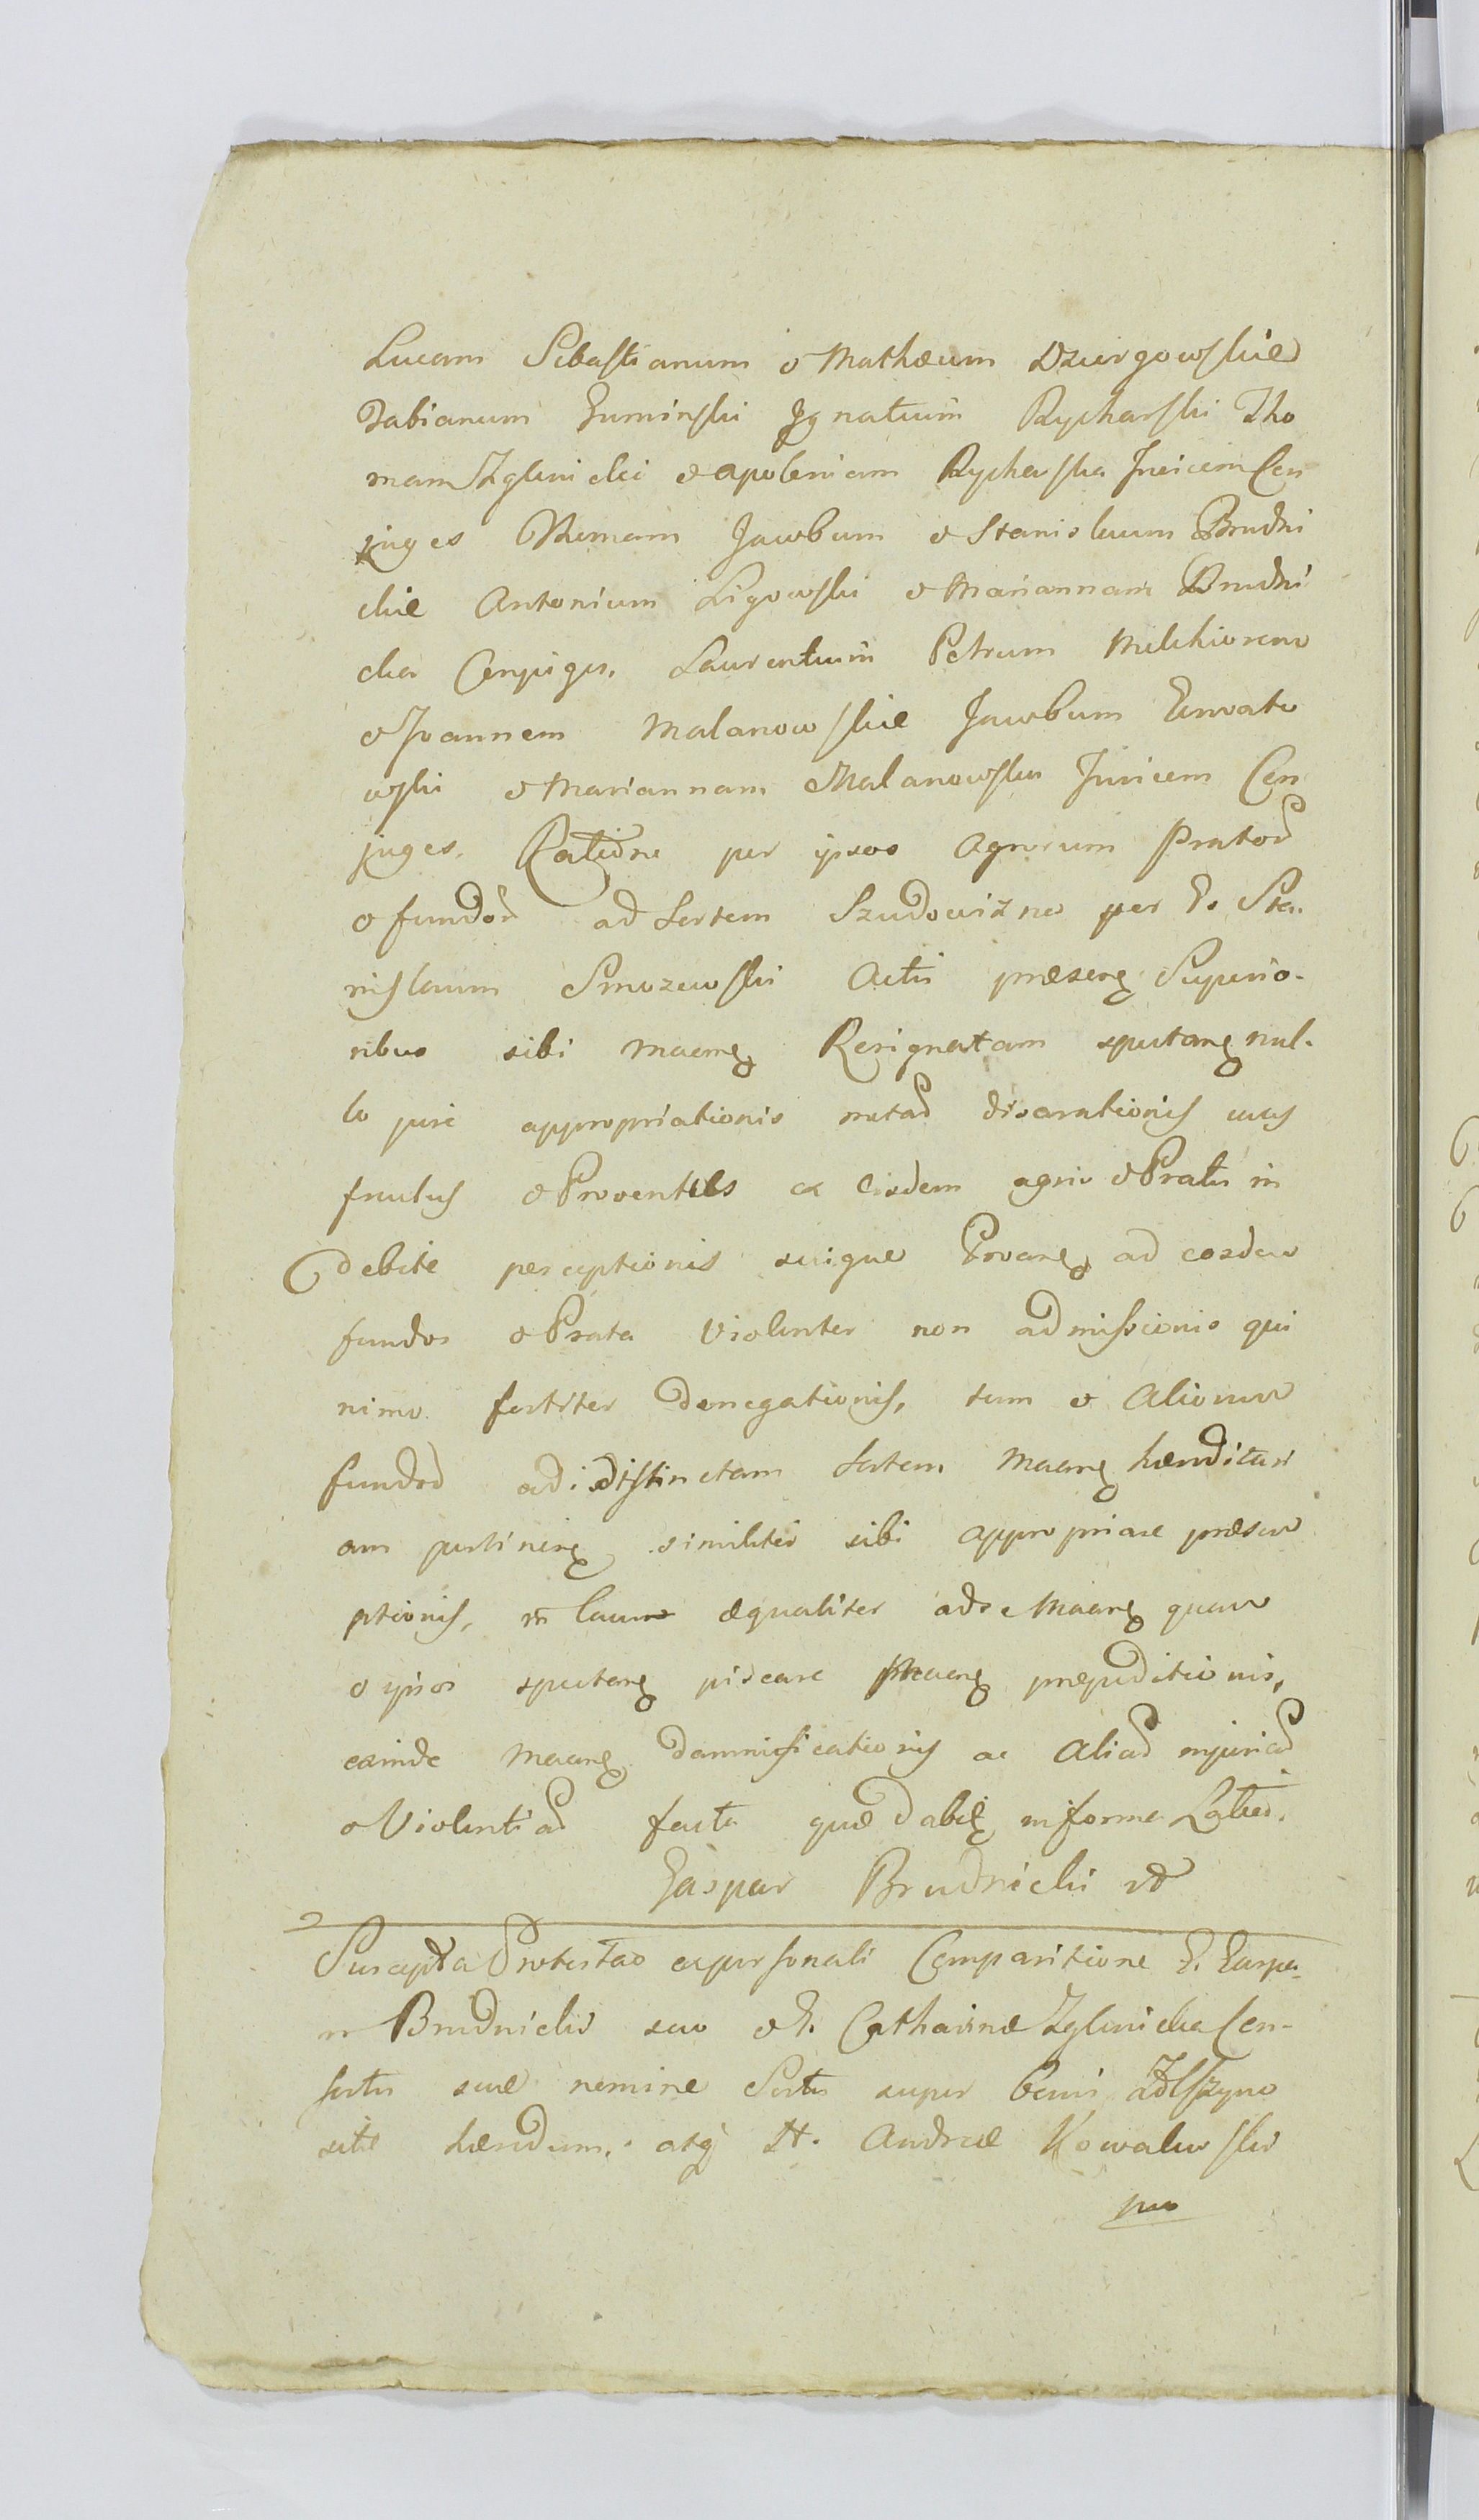 Lucam Sebastianum & Mathæum Dziergowskie
Fabianum Guminski Ignatium Rycharski Tho
mam Zglinicki & Apoloniam Rycharska Invicem Con
juges Thomam Jacobum & Stanislaum Brudni
ckie Antonium Ligowski & Mariannam Brudni
cka Conjuges. Laurentium Petrum Melchiorem
& Joannem Malanowskie Jacobum
wski & Mariannam Malanowska Invicem Con
juges. Ratione per ipsos Agrorum Prator
& fundor ad Sortem Szudowizna per G. Sta.
nislaum Smozewski Actis præsen Superio-
ribus sibi Maen Resignatam spectan nul-
lo jure appropriationis metar disarationis
fructus & Proventus ex eisdem agris & Pratis in
debite perceptionis suique Provan ad eosdem
fundos & Prata violenter non admissionis qui
nimo fortiter denegationis, tum & Aliorum
fundor ad distinctam Sortem Maen hæreditari
am pertinen similiter sibi appropriare præsum
ptionis, in Lacum æqualiter ad se Maen quam
& ipsos spectan piscare Maen præpeditionis,
exinde Maen damnificationis ac Aliar injuriar
& Violentiar facta quæ dabit in forma Latiori.
Gaspar Brudnicki
Suscepta Protestao ex personali Comparitione G. Gaspa-
ri Brudnicki suo & G. Catharinæ Zglinicka Con-
sortis suæ nomine Sortis super bonis
sitæ hæredum. atq Andreæ Kowalewski
pro